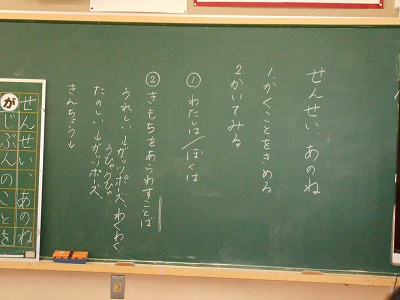 せんせい、あのね
1.かくことをきめる
2.かいてみる
①わたしは/ぼくは
②きもちをあらわすことば
うれしい→ガッツポーズ、わくわく
うひひひ。
たのしい→ガッツポーズ、
きんちょう→
せんせい、あのね
がじぶんのことを